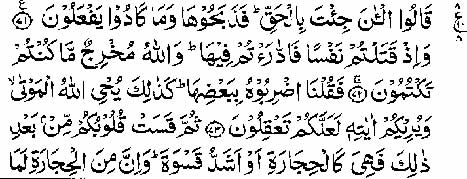 قَالُوا الْـٰٔنَ جِئْتَ بِالْحَقِّ ؕ فَذَبَحُوْهَا وَمَا كَادُوْا يَفْعَلُوْنَ ﴿۷۱﴾
وَاِذْ قَتَلْتُمْ نَفْسًا فَادّٰرَءْتُمْ فِيْهَا ؕ وَاللّٰهُ مُخْرِجٌ مَّا كُنْتُمْ
تَكْتُمُوْنَ ﴿۷۲﴾ فَقُلْنَا اضْرِبُوْهُ بِبَعْضِهَا ؕ كَذٰلِكَ يُحْيِ اللّٰهُ الْمَوْتٰى ۙ
وَيُرِيْكُمْ اٰيٰتِهٖ لَعَلَّكُمْ تَعْقِلُوْنَ ﴿۷۳﴾ ثُمَّ قَسَتْ قُلُوْبُكُمْ مِّنْۢ بَعْدِ
ذٰلِكَ فَهِيَ كَالْحِجَارَةِ اَوْ اَشَدُّ قَسْوَةً ؕ وَاِنَّ مِنَ الْحِجَارَةِ لَمَا